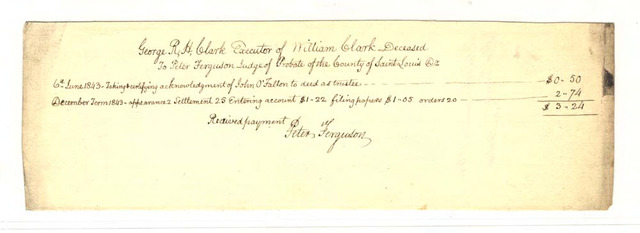 George R. H. Clark Executor of William Clark Deceased
To Peter Ferguson Judge of Probate of the County of Saint Louis Dr
6th June 1843 - Taking & certifying acknowledgment of John O'Fallon to deed as trustee $0-50
December Term 1843 - appearance 2 Settlement 25 Entering account $1-22 filing papers $1-05 orders 20 2-74
$3-24
Recieved payment
Peter Ferguson